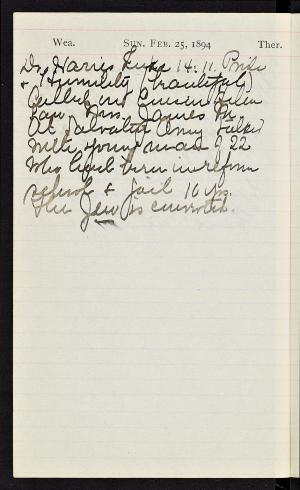 Wea. SUN. FEB. 25, 1894 Ther.
Dr. Harris Luke 14:11. Pride
& Humility (beautiful)
Called on Cousin Helen
Law, Mrs. James
At Salvation Army talked
with young man of 22
who had been in reform
school & jail 10 yrs.
The Jew is converted.